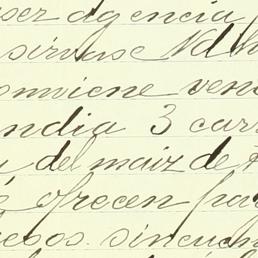 user agencia
sirvase Vd h
onviene ven
ndia 3 carr
del maiz de
ofrecen pa
esos. sincuen